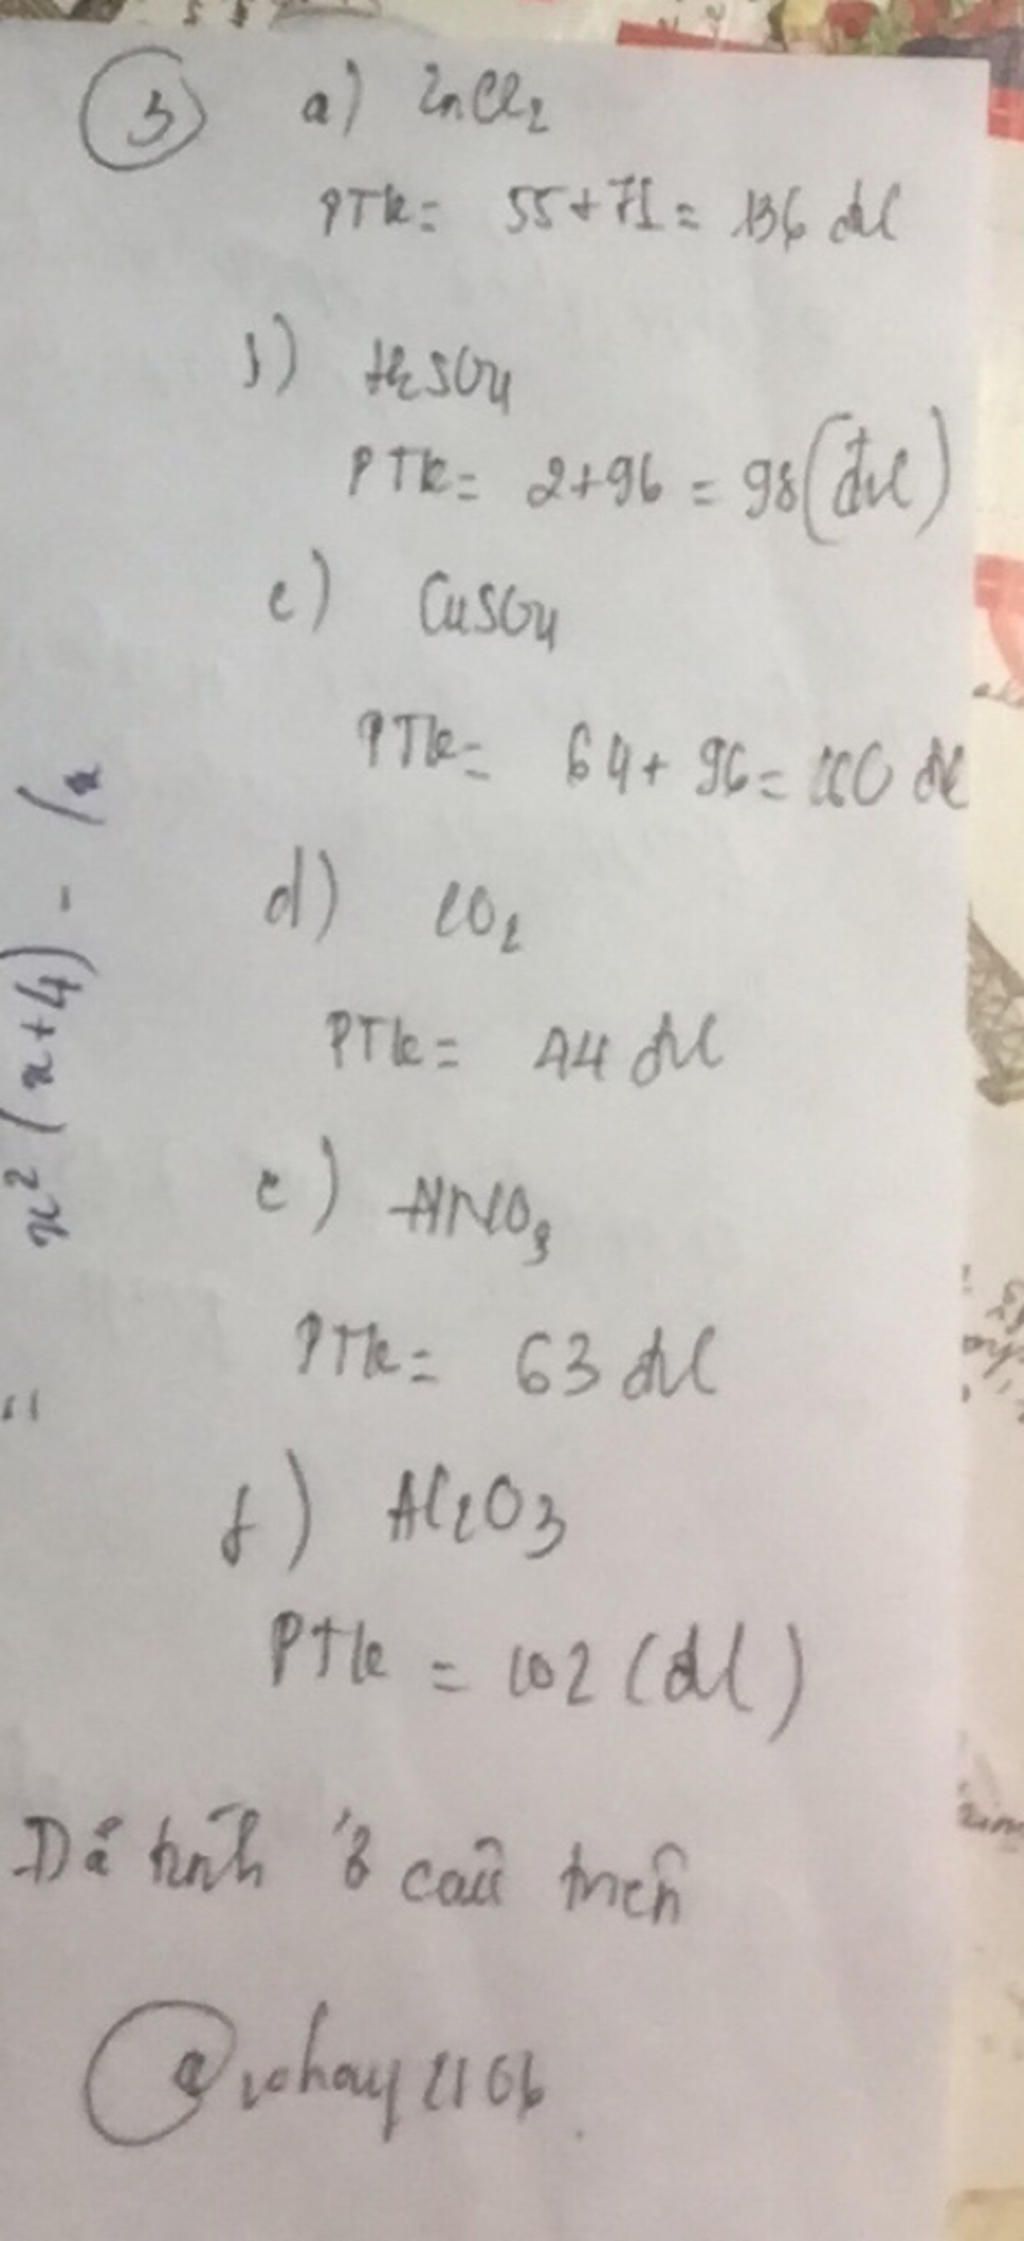 3 a) ZnCl2
PTK = 55 + 71 = 136 đvC
b) H2SO4
PTK = 2 + 96 = 98 (đvC)
c) CuSO4
PTK = 64 + 96 = 160 đvC
d) CO2
PTK = 44 đvC
e) HNO3
PTK = 63 đvC
f) Al2O3
PTK = 102 (đvC)
Đã tính ở câu trên
= x² (x+4) -